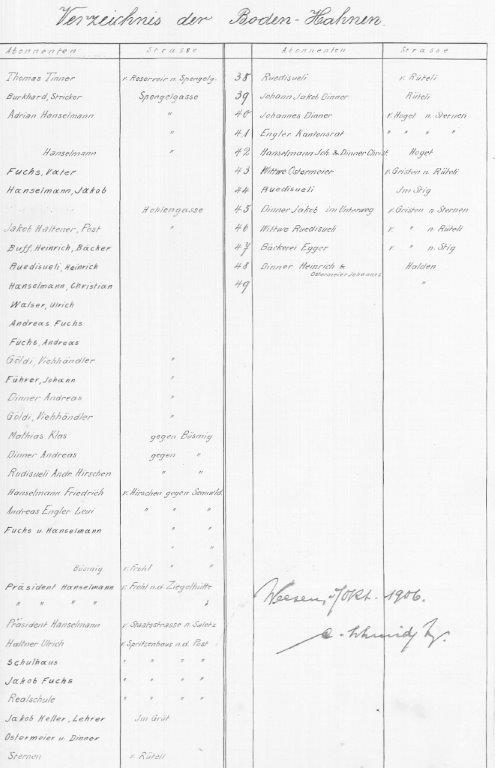 Verzeichnis der Boden-Hahnen.
Abonnenten Strasse
Thomas Tinner v. Reservoir n. Spengelg.
Burkhard, Stricker Spengelgasse
Adrian Hanselmann "
"
Hanselmann "
Fuchs, Vater
Hanselmann, Jakob
Hohlengasse
Jakob Haltener, Post "
Buff, Heinrich, Bäcker
Ruedisueli, Heinrich
Hanselmann, Christian
Walser, Ulrich
Andreas Fuchs
Fuchs, Andreas
Göldi, Viehhändler "
Führer, Johann "
Dinner Andreas "
Göldi, Viehhändler "
Mathias Klas gegen Büsmig
Dinner Andreas gegen "
Rudisueli Ande Hirschen " "
Hanselmann Friedrich v. Hirschen gegen
Andreas Engler " " "
Fuchs u Hanselmann " "
" "
Büsmig v. Fröhl "
Präsident Hanselmann v. Fröhl n.d. Ziegelhütte
" " " " "
Präsident Hanselmann v. Staatsstrasse n.
Haltner Ulrich v. Spritzenhaus n.d. Post
Schulhaus " " " "
Jakob Fuchs " " " "
Realschule " " " "
Jakob Heller, Lehrer Im
Ostermeier u. Dinner
Sternen v. Rüteli
Abonnenten Strasse
38 Ruedisueli v. Rüteli
39 Johann Jakob Dinner Rüteli
40 Johannes Dinner v. Hoget n. Sternen
41 Engler Kantonsrat " " " "
42 Hanselmann Joh & Dinner Christ. Hoget
43 Wittwe Ostermeier v. Gristen n. Rüteli
44 Ruedisueli Im Stig
45 Dinner Jakob im Unterweg v. Gristen n. Sternen
46 Wittwe Ruedisueli v. " n. Rüteli
47 Bäckerei Egger v. " n. Stig
48 Dinner Heinrich &
Ostermeier Johannes Halden
49 "
Weesen, Okt. 1906.